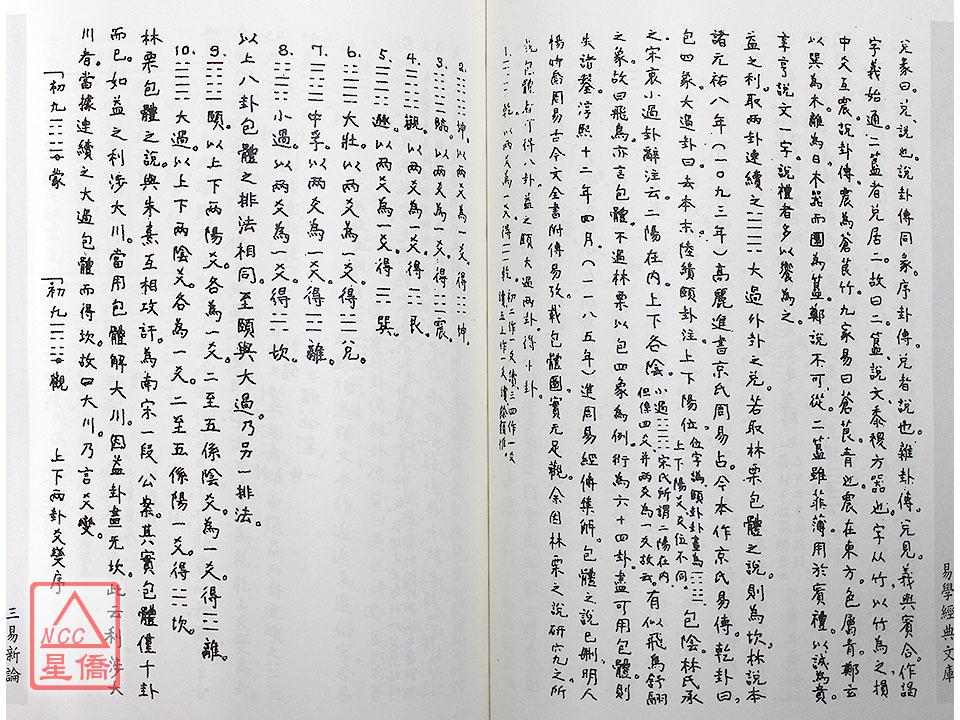 易學經典文庫
兌彖曰兌、說也說卦傳同彖。序卦傳、兌者說也雜卦傳、兌見、義與賓合作謁
字義始通。二簋者兌居二。故曰二簋、說文、黍稷方器也字从竹、以竹為之損
中爻互震、說卦傳、震為蒼筤竹。九家易曰蒼筤、青也震在東方、色屬青鄭云
以巽為木離為日木器而圜為簋。鄭說不可從。二簋雖菲薄用於賓禮、以誠為貴
享、亨說文一字、說禮者多以饗為之。
益之利。取兩卦連續之 大過外卦之兌。若取林栗包體之說則為坎。林說本
諸元祐八年(一〇九三年)高麗進書京氏周易占。今本作京氏易傳。乾卦曰、
包四象大過卦曰、去本末陸績頤卦注、上下陽位、位字譌頤卦卦畫為 上下陽爻、爻位不同。包陰林氏承
之宋衷小過卦辭注云、二陽在內、上下各陰、小過 宋氏所謂二陽在內但係四爻并兩爻為一爻故云。有似飛鳥舒翮
之象、故曰飛鳥、亦言包體。不過林栗以包四象為例、衍為六十四卦盡可用包體、則
失諸鑿淳熙十二年四月、(一一八五年)進周易經傳集解。包體之說已刪明人
楊時喬周易古今文全書附傳易考、載包體圖實无足觀。余因林栗之說研究之所
說包體者、可得八卦益之頤大過兩卦、得十卦。
1. 乾、以兩爻為一爻得 乾。初二作一爻讀、三四作一爻讀、五上作一爻讀、餘類推。
2. 坤、以兩爻為一爻、得 坤。
3. 臨、以兩爻為一爻、得 震。
4. 觀、以兩爻為一爻、得 艮。
5. 遯、以兩爻為一爻、得 巽。
6. 大壯、以兩爻為一爻、得 兌。
7. 中孚、以兩爻為一爻、得 離。
8. 小過、以兩爻為一爻、得 坎。
以上八卦包體之排法相同。至頤與大過乃另一排法。
9. 頤。以上下兩陽爻各為一爻。二至五係陰爻為一爻。得 離。
10. 大過。以上下兩陰爻。各為一爻。二至五係陽一爻。得 坎。
林栗包體之說。與朱熹互相攻訐。為南宋一段公案。其實包體僅十卦
而已。如益之利涉大川。當用包體解大川。因益卦畫无坎。此云利涉大
川者。當據連續之大過包體而得坎。故曰大川。乃言爻變。
「初九 蒙 「初九 觀 上下兩卦爻變序
三易新論
NCC
星僑